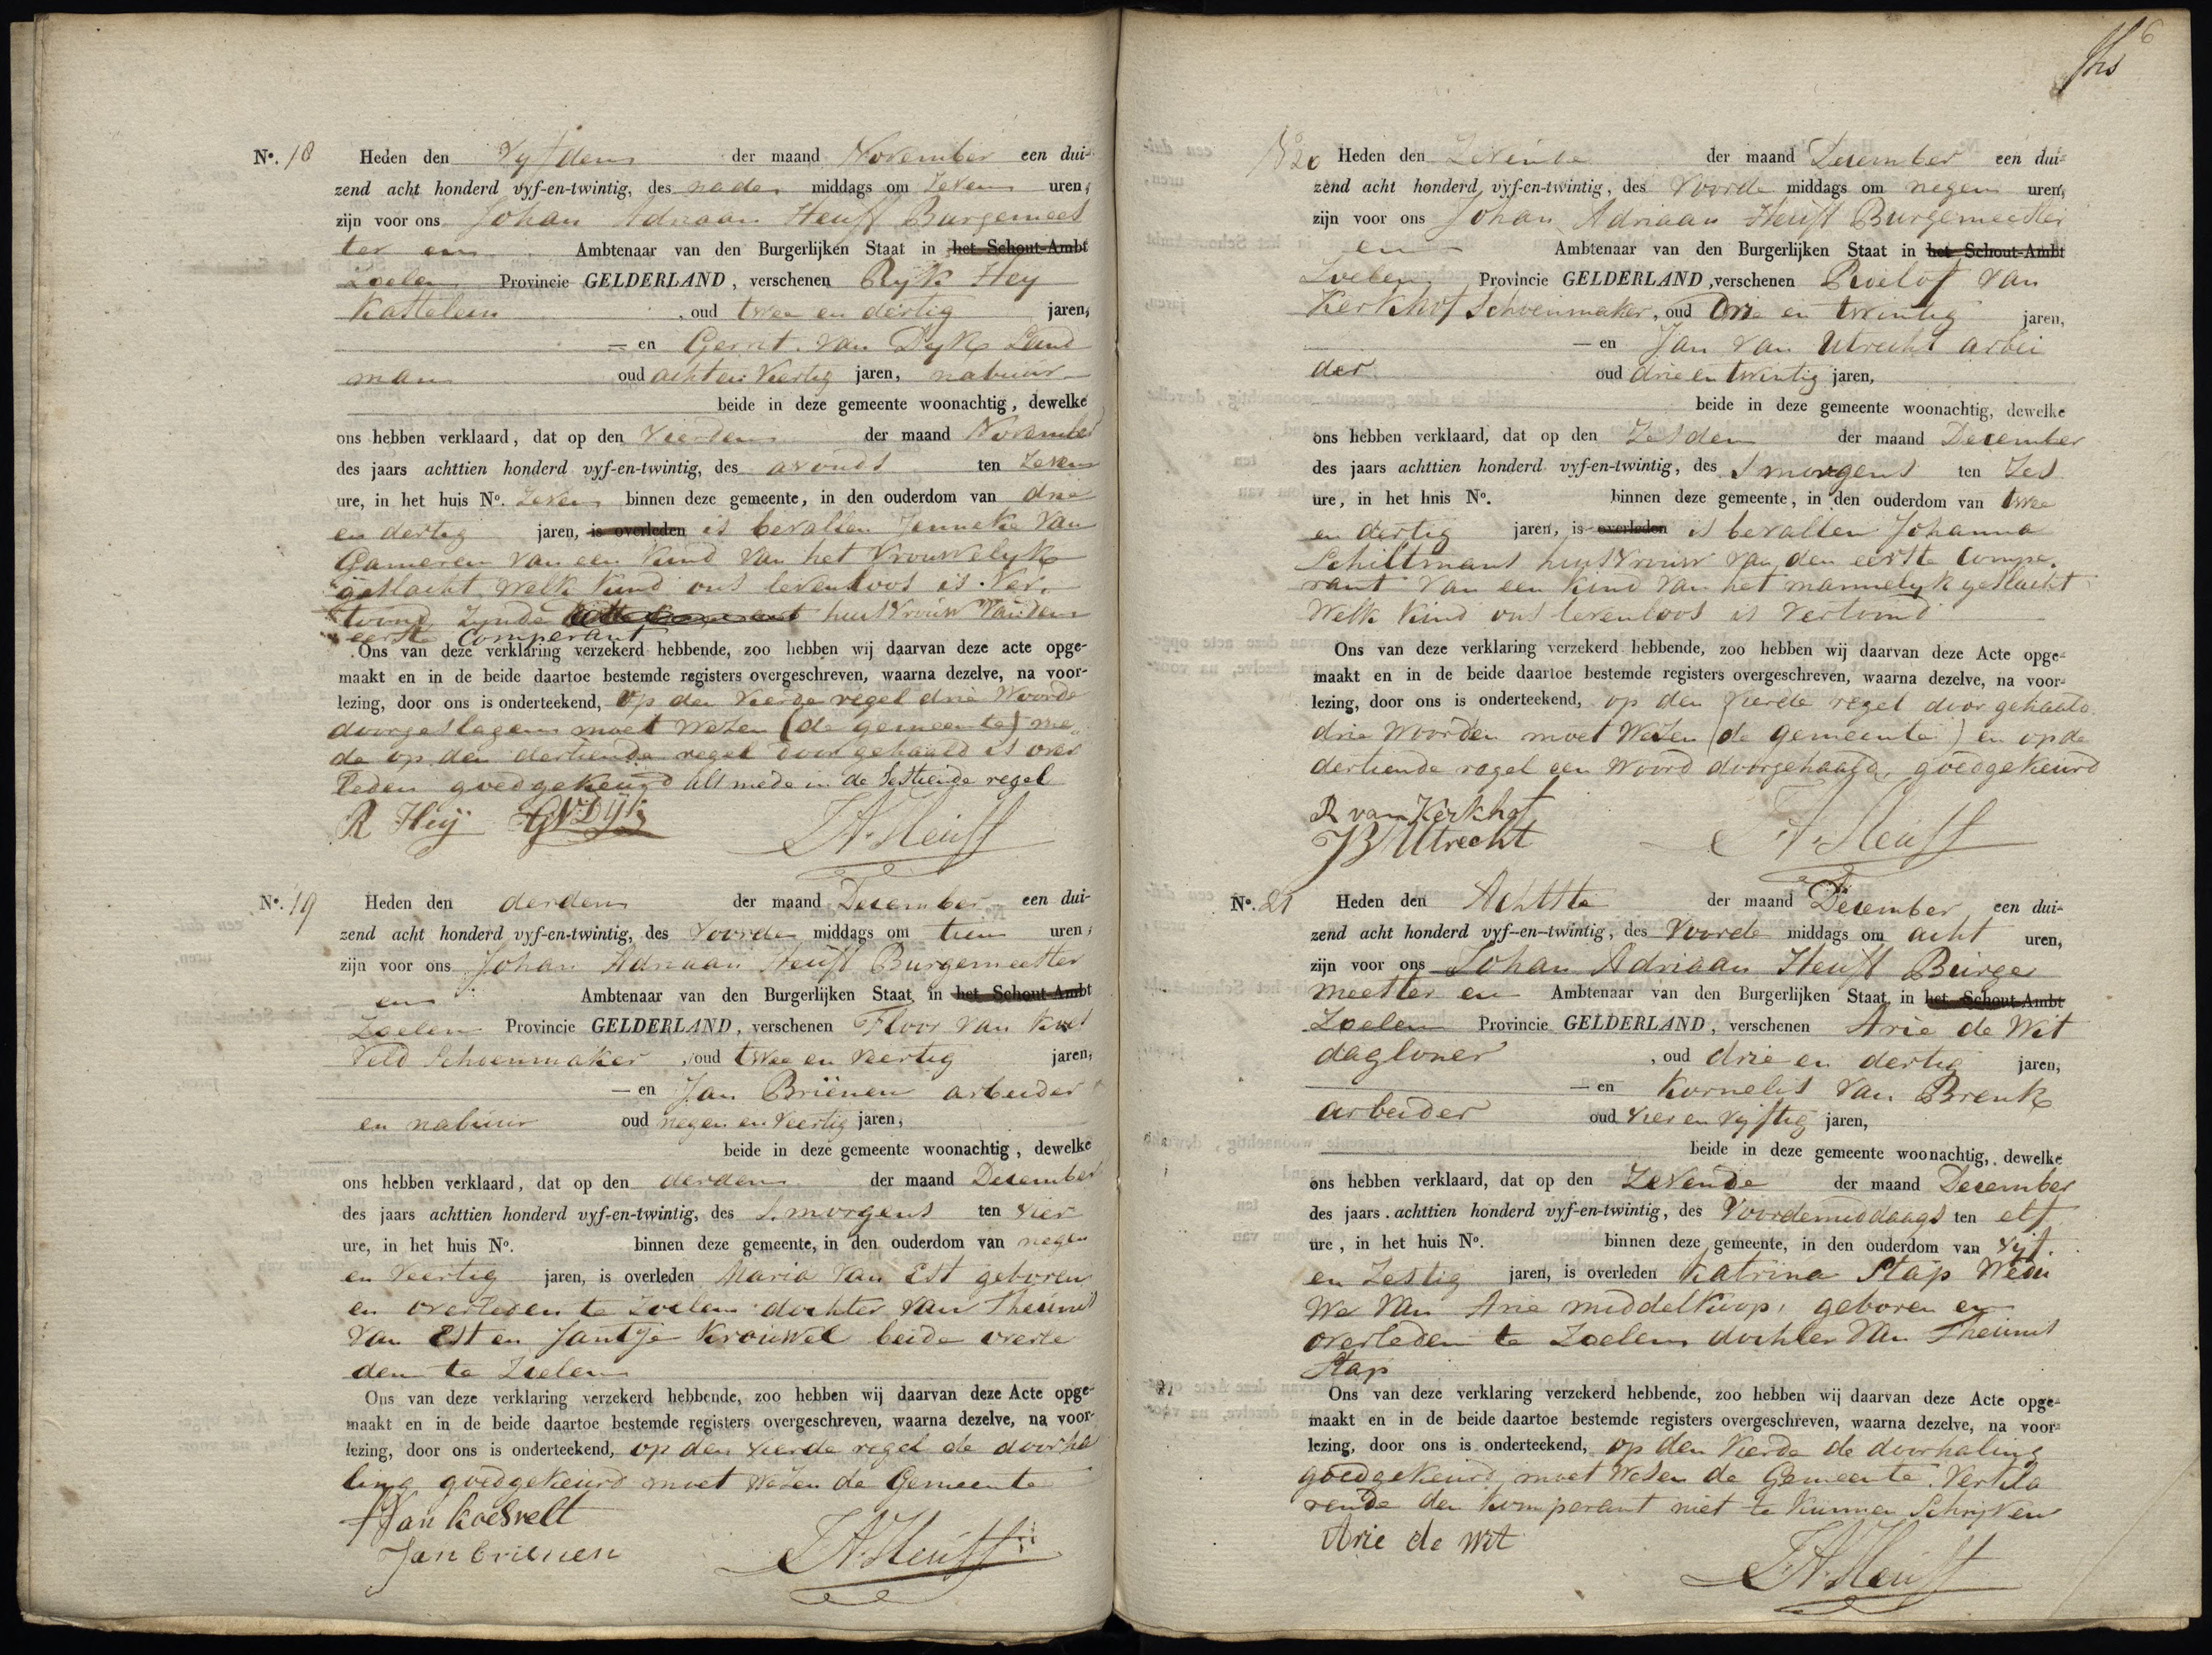 N°. 18 Heden den Vyfden der maand November een dui-
zend acht honderd vyf-en-twintig, des nade middags om Zeven uren,
zijn voor ons Johan Adriaan Heuff Burgemees
ter en Ambtenaar van den Burgerlijken Staat in het Schout-Ambt
Zoelen Provincie GELDERLAND, verschenen Ryk Hey
Kastelein, oud twee en dertig jaren,
— en Gerrit van Dyk Land
man oud acht en Veertig jaren, nabuur
beide in deze gemeente woonachtig, dewelke
ons hebben verklaard, dat op den Vierden der maand November
des jaars achttien honderd vyf-en-twintig, des avonds ten Zeven
ure, in het huis N°. Zeven binnen deze gemeente, in den ouderdom van drie
en dertig jaren, is overleden is bevallen Jenneke van
Gameren van een Kind van het Vrouwelyk
geslacht welk kind ons levenloos is Ver,
toond Zynde huisvrouw van den
eerste Comperant
Ons van deze verklaring verzekerd hebbende, zoo hebben wij daarvan deze acte opge-
maakt en in de beide daartoe bestemde registers overgeschreven, waarna dezelve, na voor-
lezing, door ons is onderteekend, op den Vierde regel drie Woorde
doorgeslagen moet Wezen (de gemeente) me,
de op den dertiende regel doorgehaald is over
leden goedgekeurd als mede in de Sestiende regel
R Heij GVDijk JAHeuff
N°. 19 Heden den derden der maand December een dui-
zend acht honderd vyf-en-twintig, des Voorde middags om tien uren,
zijn voor ons Johan Adriaan Heuff Burgemeester
en Ambtenaar van den Burgerlijken Staat in het Schout-Ambt
Zoelen Provincie GELDERLAND, verschenen Floor van Koes
Veld Schoenmaker, oud twee en Veertig jaren,
— en Jan Briënen arbeider
en nabuur oud negen en Veertig jaren,
beide in deze gemeente woonachtig, dewelke
ons hebben verklaard, dat op den derden der maand December
des jaars achttien honderd vyf-en-twintig, des S,morgens ten Vier
ure, in het huis N°. binnen deze gemeente, in den ouderdom van negen
en Veertig jaren, is overleden Maria Van Est geboren
en overleden te Zoelen dochter van Theunis
Van Est en Jantje Krouwel beide overle
den te Zoelen
Ons van deze verklaring verzekerd hebbende, zoo hebben wij daarvan deze Acte opge-
maakt en in de beide daartoe bestemde registers overgeschreven, waarna dezelve, na voor-
lezing, door ons is onderteekend, op den Vierde regel de doorha
ling goedgekeurd moet Wezen de Gemeente
F Van Koesvelt
Jan brienen JAHeuff
6
N° 20 Heden den Zevende der maand December een dui-
zend acht honderd vyf-en-twintig, des Voorde middags om negen uren,
zijn voor ons Johan Adriaan Heuff Burgemeester
en Ambtenaar van den Burgerlijken Staat in het Schout-Ambt
Zoelen Provincie GELDERLAND, verschenen Roelof van
Kerkhof Schoenmaker, oud Drie en twintig jaren,
— en Jan van Utrecht arbei
der oud drie en twintig jaren,
beide in deze gemeente woonachtig, dewelke
ons hebben verklaard, dat op den Zesden der maand December
des jaars achttien honderd vyf-en-twintig, des Smorgens ten Zes
ure, in het hnis N°. binnen deze gemeente, in den ouderdom van twee
en dertig jaren, is overleden is bevallen Johanna
Schiltmans huisvrouw van den eerste Compe,
rant Van een kind van het mannelyk geslacht
Welk kind ons levenloos is vertoond
Ons van deze verklaring verzekerd hebbende, zoo hebben wij daarvan deze Acte opge-
maakt en in de beide daartoe bestemde registers overgeschreven, waarna dezelve, na voor-
lezing, door ons is onderteekend, op den Vierde regel door gehaald
drie Woorden moet Wezen (de gemeente) en op de
dertiende regel een Woord doorgehaald, goedgekeurd
R van Kerkhof
JVUtrecht JAHeuff
N°. 21 Heden den Achtste der maand December een dui-
zend acht honderd vyf-en-twintig, des Voorde middags om acht uren,
zijn voor ons Johan Adriaan Heuff Burge
meester en Ambtenaar van den Burgerlijken Staat in het Schout-Ambt
Zoelen Provincie GELDERLAND, verschenen Arie de Wit
dagloner, oud drie en dertig jaren,
— en Kornelis van Brenk
arbeider oud Vier en Vijftig jaren,
beide in deze gemeente woonachtig, dewelke
ons hebben verklaard, dat op den Zevende der maand December
des jaars achttien honderd vyf-en-twintig, des Voordemiddaags ten elf
ure, in het huis N°. binnen deze gemeente, in den ouderdom van Vijf.
en Zestig jaren, is overleden Katrina Stap Wedu
We Van Arie middelkoop, geboren en
overleden te Zoelen dochter Van Theunis
Stap
Ons van deze verklaring verzekerd hebbende, zoo hebben wij daarvan deze Acte opge-
maakt en in de beide daartoe bestemde registers overgeschreven, waarna dezelve, na voor-
lezing, door ons is onderteekend, op den Vierde de doorhaling
goedgekeurd, moet Wesen de Gemeente. Verkla
rende den komperant niet te kunnen Schrijven
Arie de Wit
JAHeuff